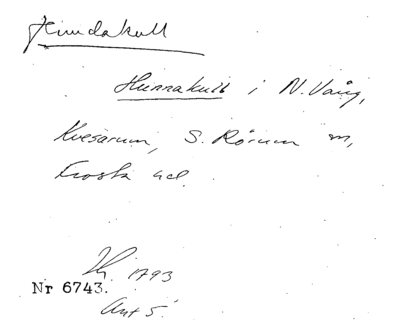 Hundakull
Hunnakull i N. Vång,
Kvesarum, S. Rörum m,
Frosta hd.
1793
Nr 6743.
Ant 5